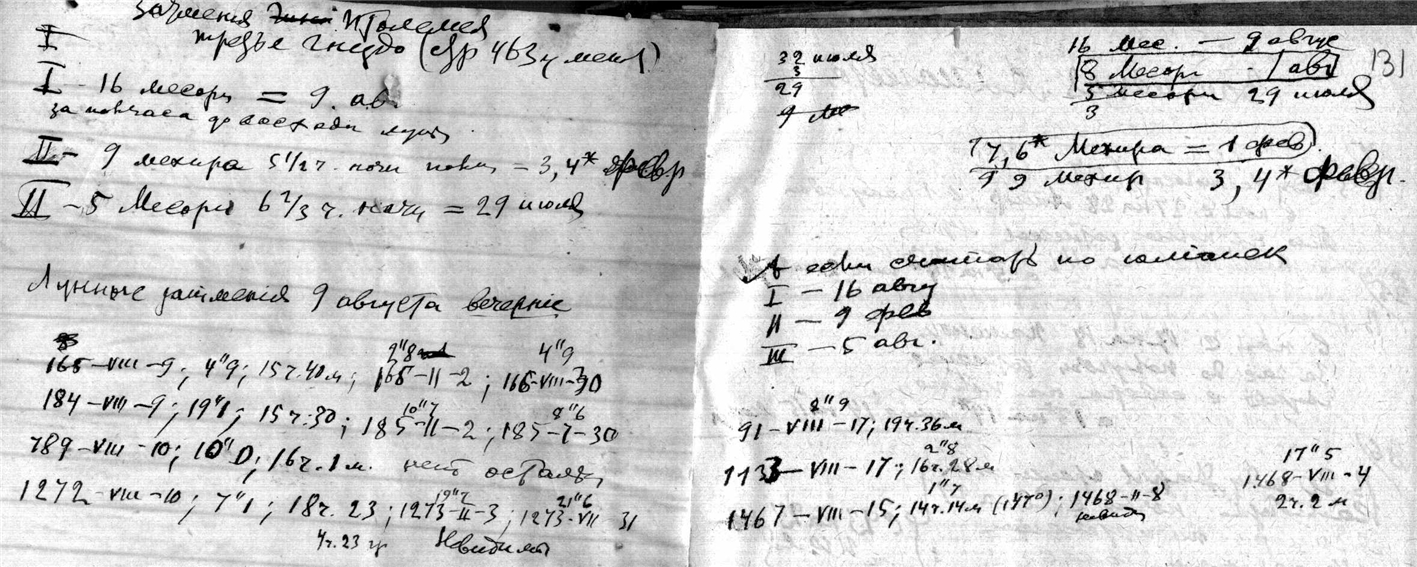 затмения Птолемея
I третье гнездо (стр 463 у меня)
I - 16 месори = 9. ав
за полчаса до восхода луны
II - 9 мехира 5 1/2 ч. ночи = 3, 4* февр
III - 5 Месори 6 2/3 ч. ночи = 29 июля
Лунные затмения 9 августа вечерние
2"8 4"9
165-VIII-9; 4"9; 15ч.40м; 166-II-2; 166-VIII-30
184-VIII-9; 19"1; 15ч.30; 185-II-2; 185-7-30
10"7 8"6
789-VIII-10; 10"0; 16ч.1м. нет осталь
1272-VIII-10; 7"1; 18ч.23; 1273-II-3; 1273-VII 31
19"7 21"6
4ч.23 Невидимы
32 июля
3
29
9
131
16 мес. - 9 авгус
8 Месори - 1 авг
5 месори 29 июля
3
7,6* Мехира = 1 фев
9 9 мехир 3, 4* февр.
А если считать по юлиански
I - 16 авгу
II - 9 фев
III - 5 авг.
8"9
91-VIII-17; 19ч.36м
2"8
1133-VIII-17; 16ч.28м
1"7
1467-VIII-15; 14ч.14м (147°); 1468-II-8
невиди
17"5
1468-VIII-4
2ч.2м